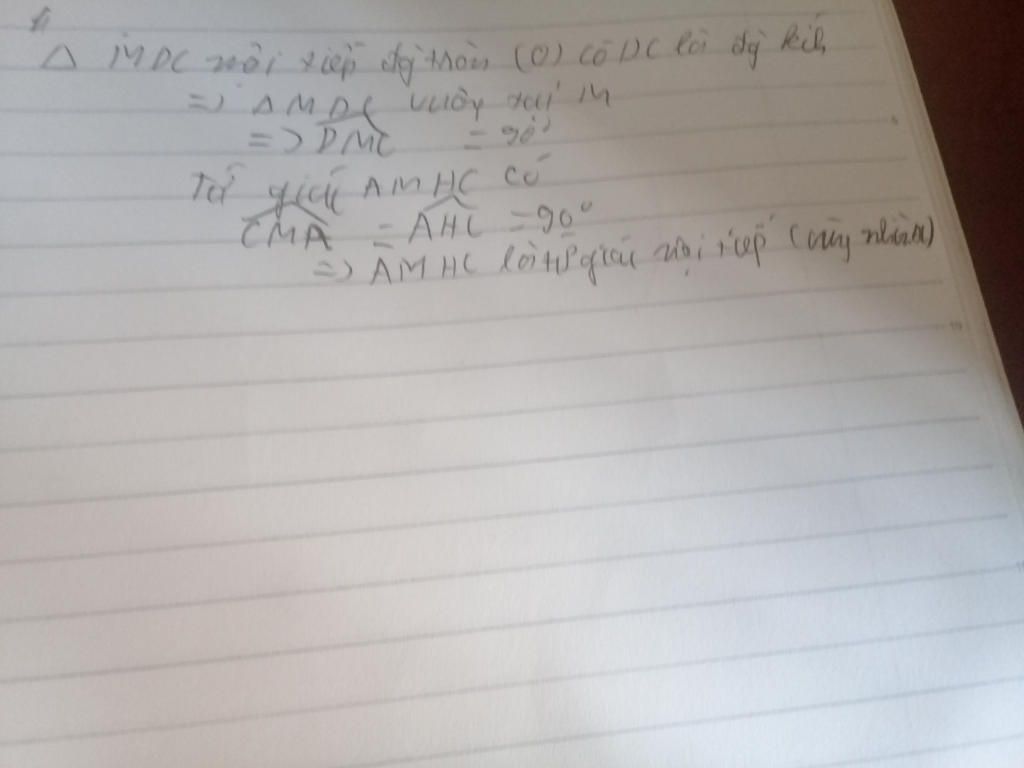 1/
Δ MDC nội tiếp đg tròn (O) có DC là đg kính
=> Δ MDC vuông tại M
=> DMC = 90°
Tứ giác AMHC có
CMA = AHC = 90°
=> AMHC là tứ giác nội tiếp (cùng nhìn)